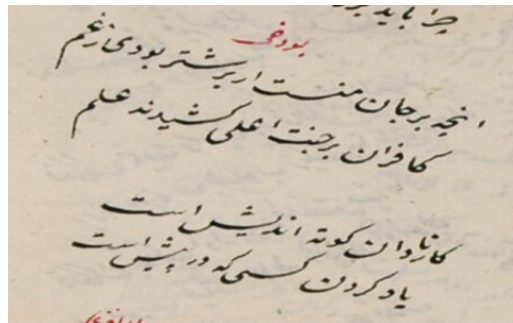 چرا باید
انچه بر جان منست ار بر شتر بودی زغم
کافران بر جنت اعلی کشیدند علم
کار نادان کوته اندیش است
یاد کردن کسی که در پیش است